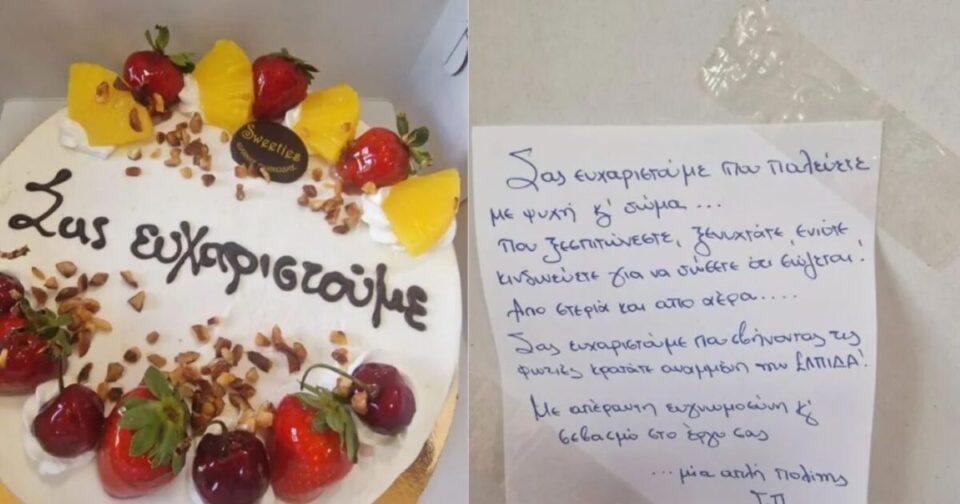 Sweeties
Σας ευχαριστούμε
Σας ευχαριστούμε που παλεύετε
με ψυχή κ' σώμα...
που ξεσπιτώνεστε, ξενυχτάτε, ενίοτε
κινδυνεύετε για να σώσετε ότι σώζεται!
Από στεριά και από αέρα....
Σας ευχαριστούμε που σβήνοντας τις
φωτιές κρατάτε αναμμένη την ΕΛΠΙΔΑ!
Με απέραντη ευγνωμοσύνη κ'
σεβασμό στο έργο σας
...μία απλή πολίτης